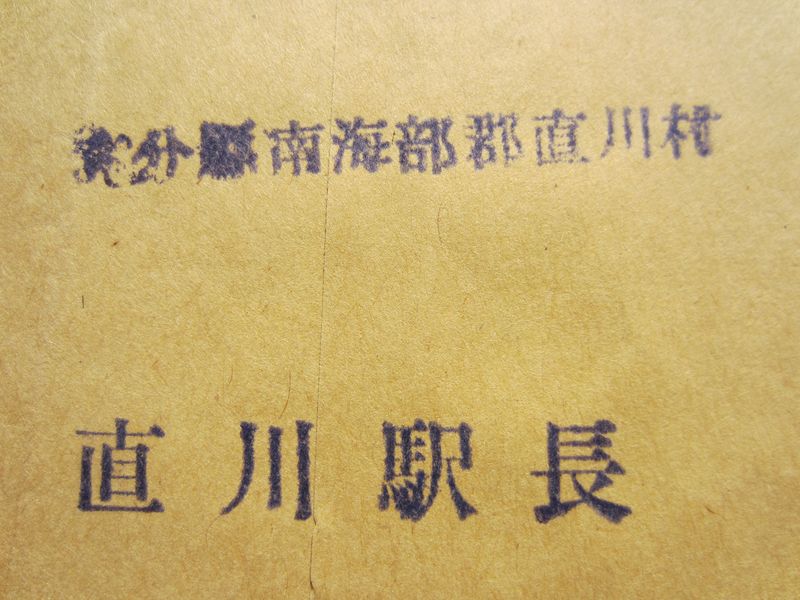 大分縣南海部郡直川村
直川駅長